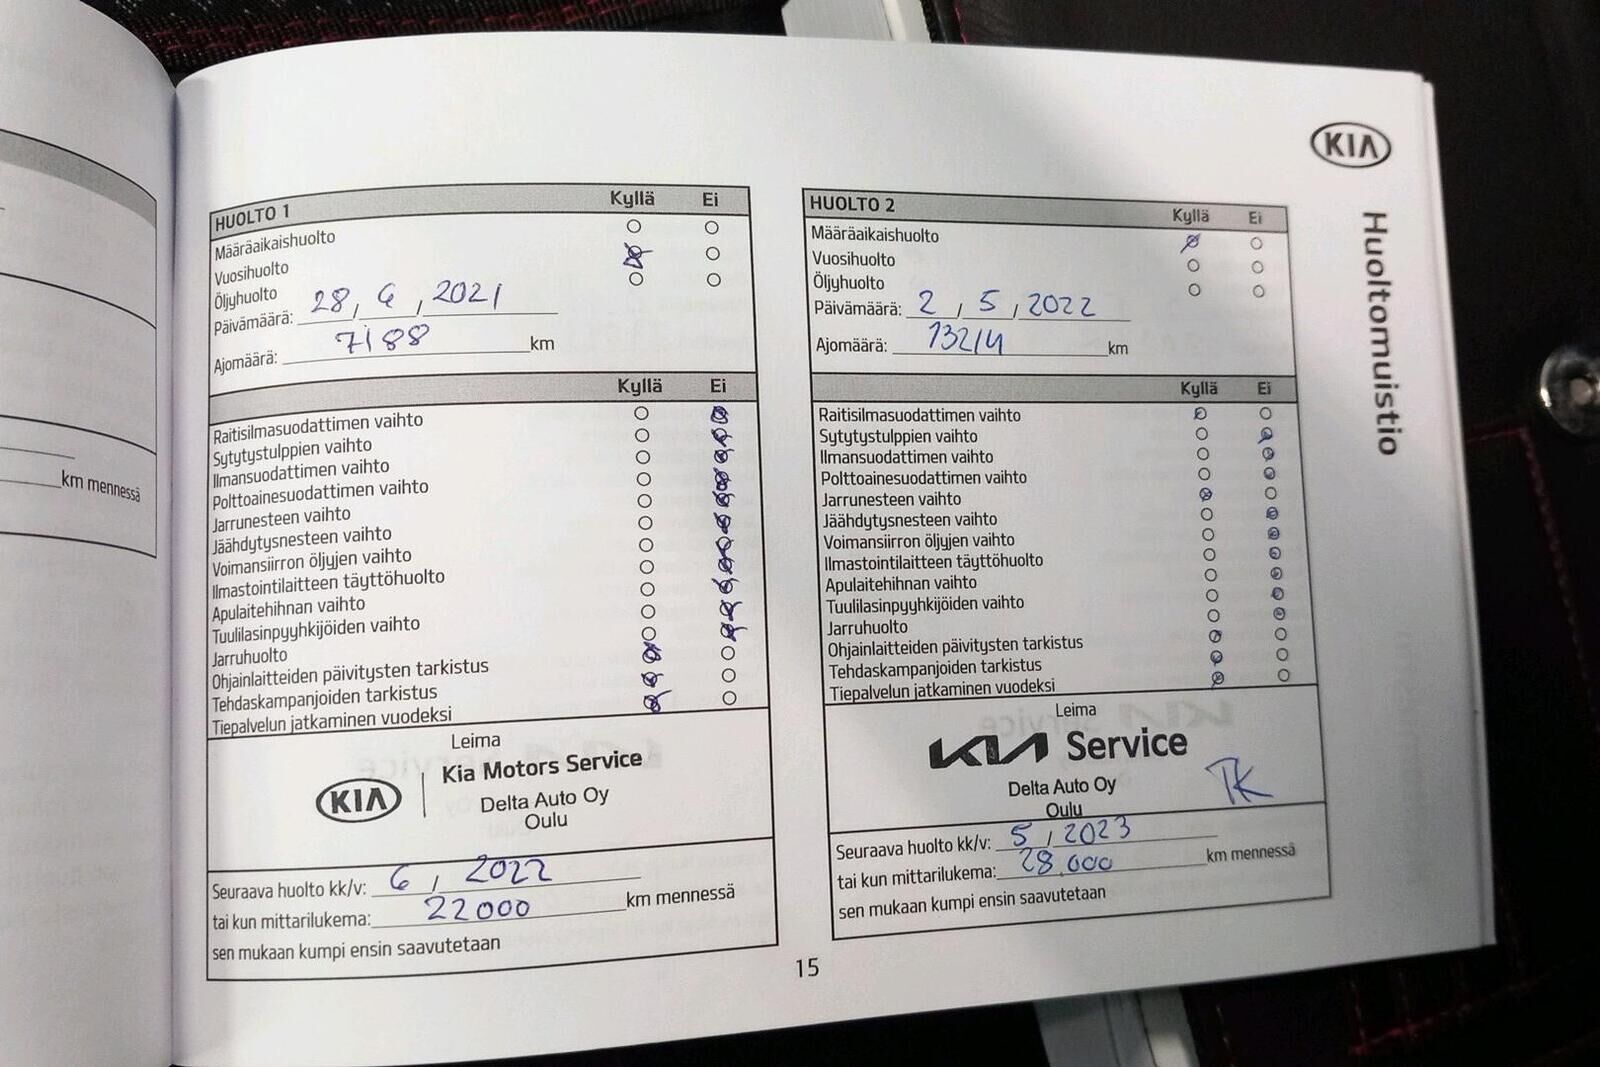 KIA
Huoltomuistio
km mennessä
HUOLTO 1 Kyllä Ei
Määräaikaishuolto
Vuosihuolto
Öljyhuolto
Päivämäärä: 28, 6, 2021
Ajomäärä: 7188 km
Kyllä Ei
Raitisilmasuodattimen vaihto
Sytytystulppien vaihto
Ilmansuodattimen vaihto
Polttoainesuodattimen vaihto
Jarrunesteen vaihto
Jäähdytysnesteen vaihto
Voimansiirron öljyjen vaihto
Ilmastointilaitteen täyttöhuolto
Apulaitehihnan vaihto
Tuulilasinpyyhkijöiden vaihto
Jarruhuolto
Ohjainlaitteiden päivitysten tarkistus
Tehdaskampanjoiden tarkistus
Tiepalvelun jatkaminen vuodeksi
Leima
KIA Kia Motors Service
Delta Auto Oy
Oulu
Seuraava huolto kk/v: 6, 2022
tai kun mittarilukema: 22000 km mennessä
sen mukaan kumpi ensin saavutetaan
HUOLTO 2 Kyllä Ei
Määräaikaishuolto
Vuosihuolto
Öljyhuolto
Päivämäärä: 2, 5, 2022
Ajomäärä: 13214 km
Kyllä Ei
Raitisilmasuodattimen vaihto
Sytytystulppien vaihto
Ilmansuodattimen vaihto
Polttoainesuodattimen vaihto
Jarrunesteen vaihto
Jäähdytysnesteen vaihto
Voimansiirron öljyjen vaihto
Ilmastointilaitteen täyttöhuolto
Apulaitehihnan vaihto
Tuulilasinpyyhkijöiden vaihto
Jarruhuolto
Ohjainlaitteiden päivitysten tarkistus
Tehdaskampanjoiden tarkistus
Tiepalvelun jatkaminen vuodeksi
Leima
KIA Service
Delta Auto Oy
Oulu
TK
Seuraava huolto kk/v: 5, 2023
tai kun mittarilukema: 28.000 km mennessä
sen mukaan kumpi ensin saavutetaan
15